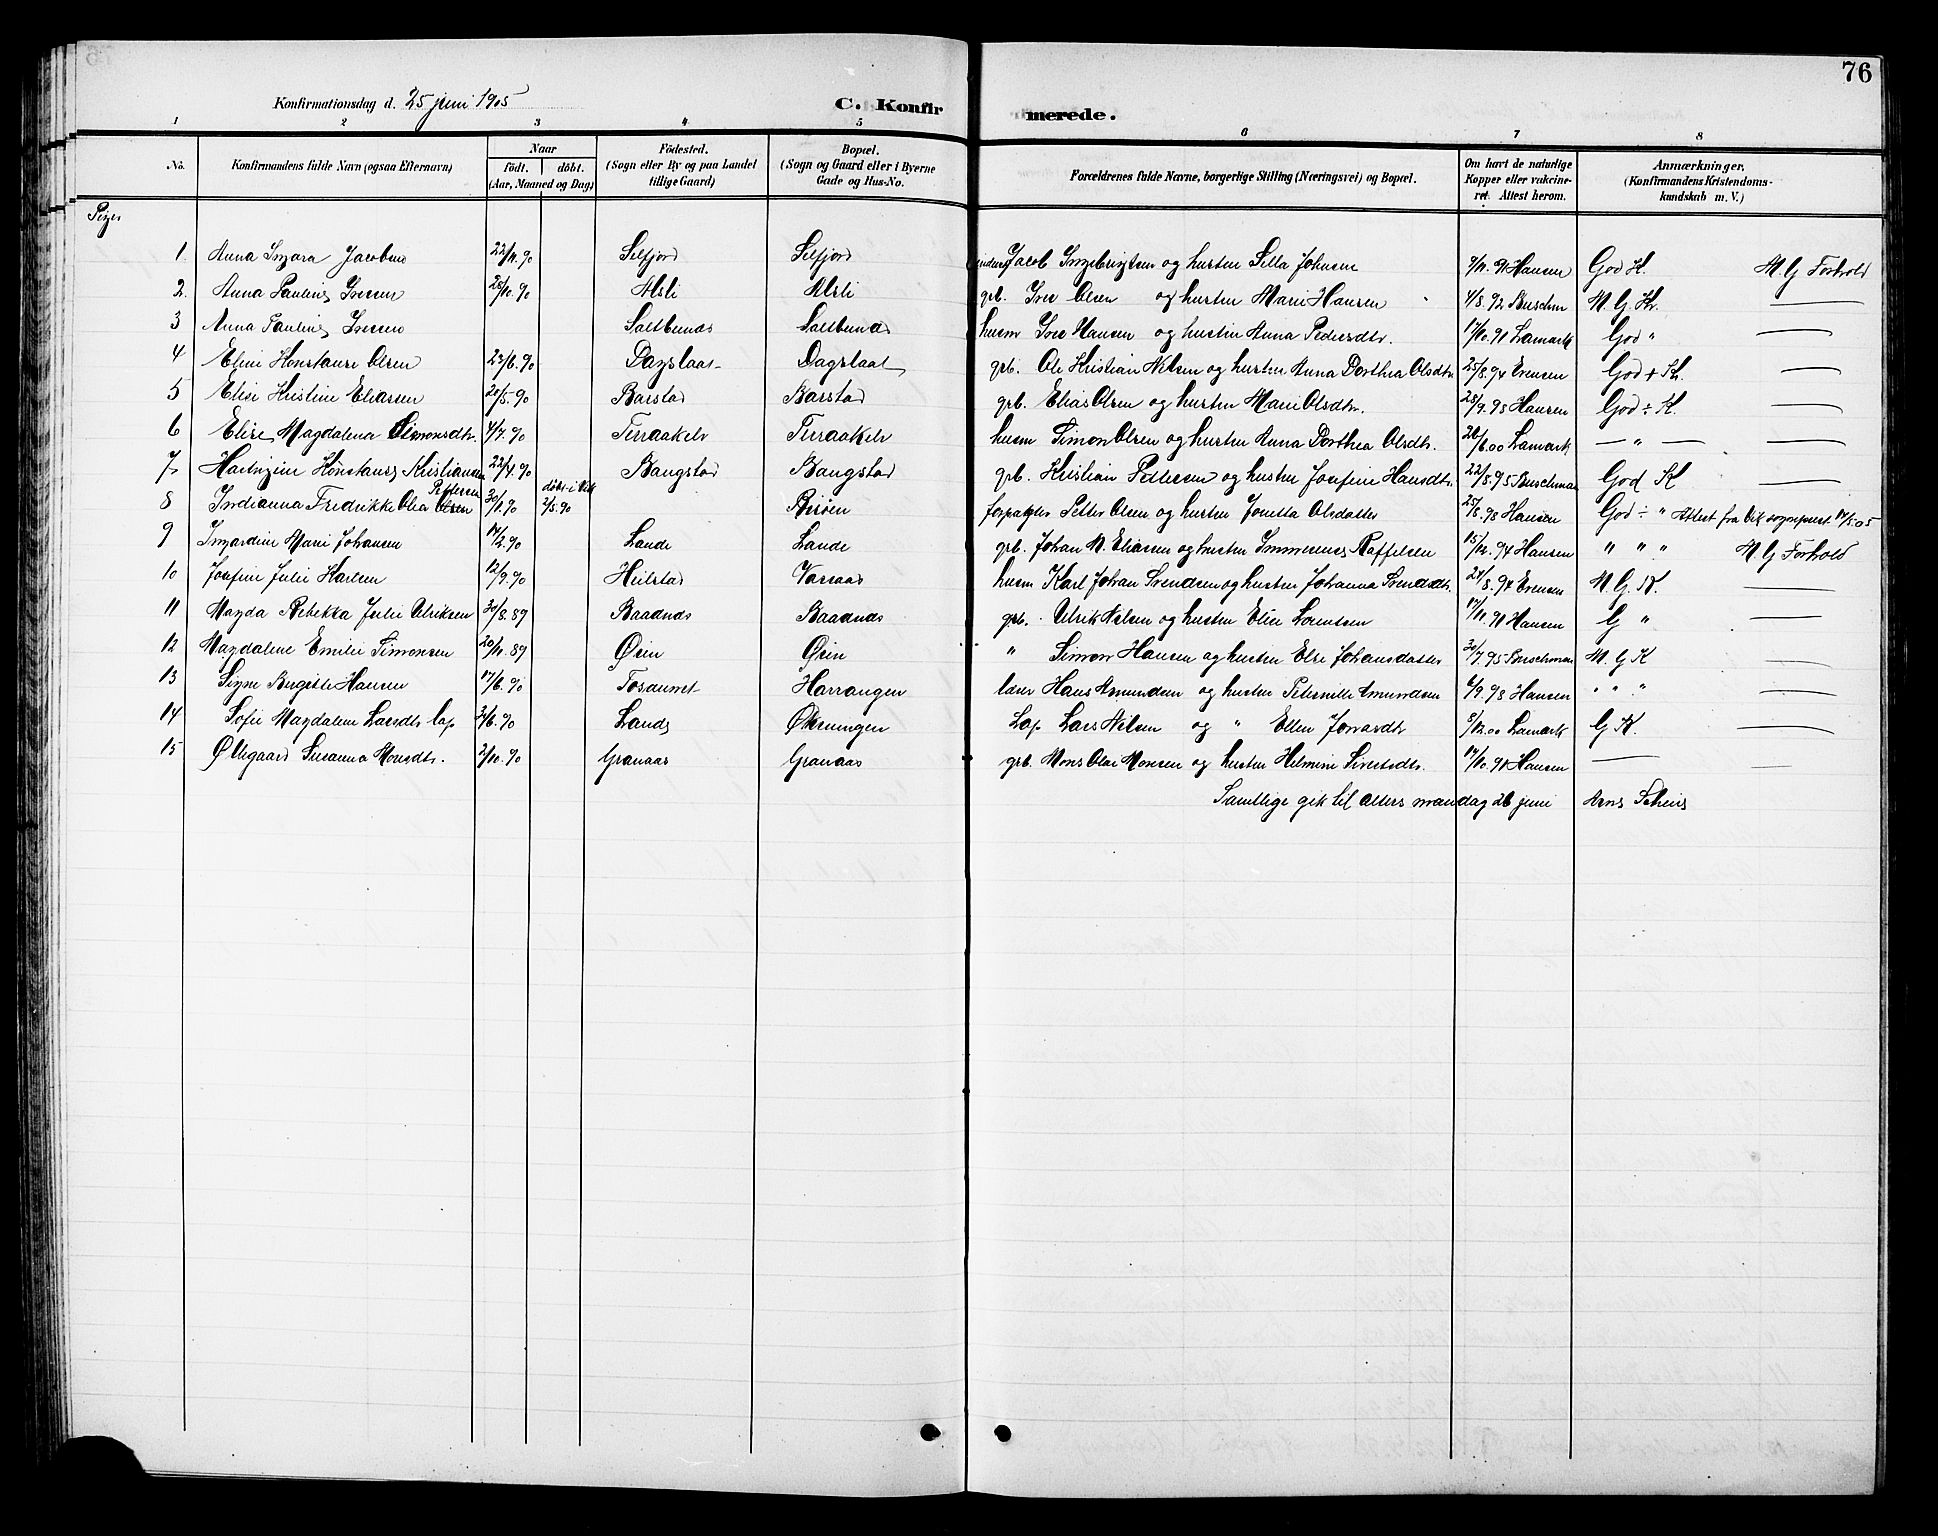 76
Konfirmationsdag d. 25 juni 1905 C. Konfirmerede.
1 2 3 4 5 6 7 8
No. Konfirmandens fulde Navn (ogsaa Efternavn) Naar födt. döbt. (Aar, Maaned og Dag) Födested. (Sogn eller By og paa Landet tillige Gaard) Bopæl. (Sogn og Gaard eller i Byerne Gade og Hus-No. Forældrenes fulde Navne, borgerlige Stilling (Næringsvei) og Bopæl. Om havt de naturlige Kopper eller vakcineret. Attest herom. Anmærkninger, (Konfirmandens Kristendomskundskab m. V.)
Piger
1. Anna Ingara Jacobsen 22/11.90 Selfjord Selfjord Jacob Ingebrigtsen og hustru Sella Johnsen 9/11.91 Hansen God K. M. G Forhold
2. Anna Pauline Iversen 28/10.90 Alsli Alsli grb. Iver Olsen og hustru Marie Hansen 4/8.92 Buschman M. G. Kr. —
3 Anna Pauline Iversen Saltbunes Saltbunes husm Iver Hansen og hustru Anna Pedersdtr. 17/10.90 Lamark God " —
4 Eline Konstanse Olsen 23/6.90 Dagslaat Dagslaat grb. Ole Kristian Nilsen og hustru Anna Dorthea Olsdtr 25/8.94 Evensen God + Kr. —
5 Elise Kristine Eliassen 20/5.90 Barstad Barstad grb. Elias Olsen og hustru Marie Olsdtr. 28/9.95 Hansen God ÷ K. —
6 Elise Magdalena Simonsdtr. 4/7.90 Terraakelv Terraakelv husm Simon Olsen og hustru Anna Dorthea Olsdtr. 20/6.00 Lamark — " — —
7 Hartvigine Konstanse Kristiansen 22/4.90 Bangstad Bangstad grb. Kristian Pedersen og hustru Josefine Hansdtr. 22/8.95 Buschman God K —
8 Indianna Fredrikke Olea Olsen Pettersen 30/1.90 döbt i Vik 2/5.90 Risöen forpagter Petter Olsen og hustru Jonetta Olsdatter 25/8.98 Hansen God ÷ " Attest fra Vik sogneprest 14/5.05
9 Ingardine Marie Johansen 14/2.90 Lande Lande grb. Johan M. Eliasen og hustru Immerense Raffelsen 15/12.94 Hansen " " " M G Forhold
10 Josefine Julie Karlsen 12/9.90 Heilstad Vassaas husm Karl Johan Svendsen og hustru Johanna Svendsdtr. 24/8.94 Evensen M. G. K. —
11 Magda Rebekka Julie Ulriksen 30/8.89 Baadnes Baadnes grb. Ulrik Nilsen og hustru Elise Lorentsen 17/11.90 Hansen G " —
12 Magdalene Emilie Simonsen 20/11.89 Øien Øien " Simon Hansen og hustru Else Johansdatter 30/7.95 Buschman M. G K —
13 Signe Birgitte Hansen 17/6.90 Tosdunet Harrangen lærer Hans Amundsen og hustru Peternille Amundsen 6/9.98 Hansen " " " —
14 Sofie Magdalene Larsdtr Lap 3/6.90 Lande Økningen Lap Lars Nilsen og " Ellen Jonasdtr 5/12.00 Lamark G K. —
15 Øllegaard Susanna Monsdtr. 2/10.90 Granaas Granaas grb. Mons Olai Monsen og hustru Helmine Sivertsdtr. 17/10.91 Hansen — —
Samtlige gik til alters mandag 26 juni Arne Scheie